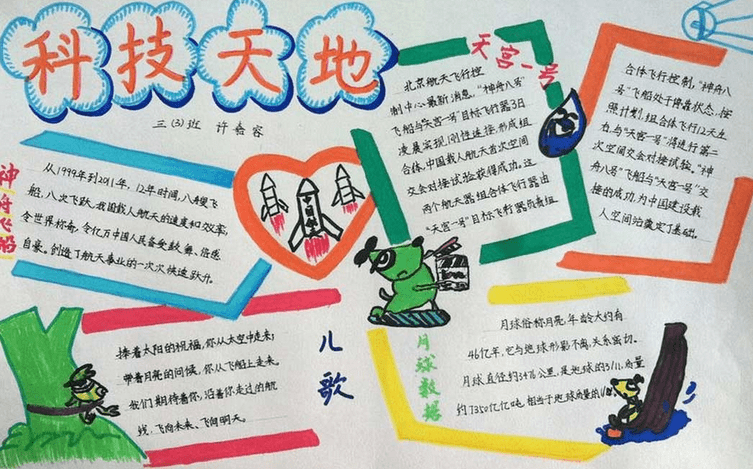 科技天地
三(3)班 许睿容
神舟飞船
从1999年到2011年，12年时间，八艘飞
船，八次飞跃，我国载人航天的速度和效率，
令世界称奇，令亿万中国人民备受鼓舞、倍感
自豪，创造了航天事业的一次次快速跃升。
天宫一号
北京航天飞行控
制中心最新消息，“神舟八号”
飞船与“天宫一号”目标飞行器3日
凌晨实现刚性连接，形成组
合体，中国载人航天首次空间
交会对接试验获得成功。这
两个航天器组合体飞行器由
“天宫一号”目标飞行器负责组
合体飞行控制，“神舟八
号”飞船处于停靠状态，按
照计划，组合体飞行12天左
右，与“天宫一号”将进行第二
次空间交会对接试验。“神
舟八号”飞船与“天宫一号”交
接的成功，为中国建设载
人空间站奠定了基础。
儿歌
捧着太阳的祝福，你从太空中走来，
带着月亮的问候，你从飞船上走来。
我们期待着你，沿着你走过的航
线，飞向未来、飞向明天。
月球数据
月球俗称月亮，年龄大约有
46亿年，它与地球形影不离，关系密切。
月球直径约3476公里，是地球的3/11，质量
约7350亿亿吨，相当于地球质量的1/81